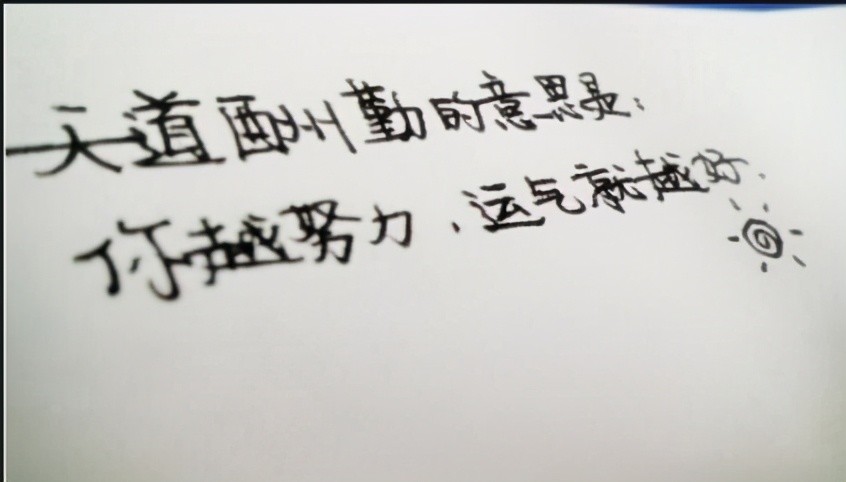 天道酬勤的意思是：
你越努力、运气就越好.